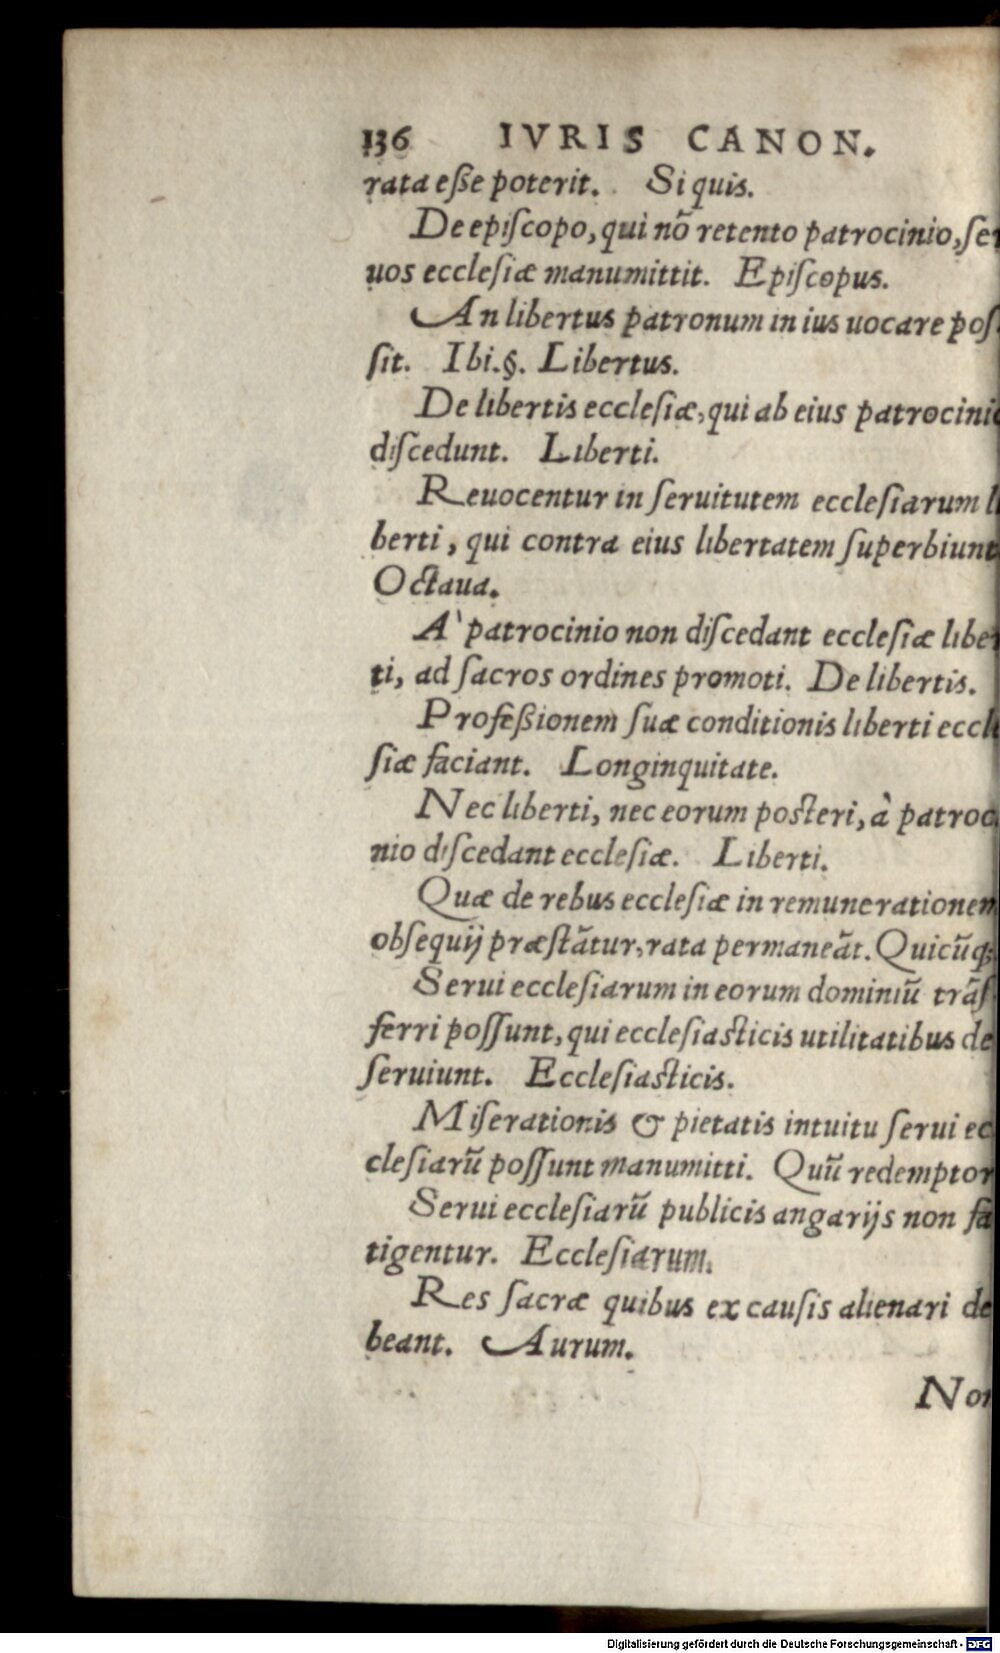 136 IVRIS CANON.
rata eße poterit. Si quis.
De episcopo, qui nõ retento patrocinio, ser
uos ecclesiæ manumittit. Episcopus.
An libertus patronum in ius uocare pos
sit. Ibi.§. Libertus.
De libertis ecclesiæ, qui ab eius patrocinio
discedunt. Liberti.
Reuocentur in seruitutem ecclesiarum li
berti, qui contra eius libertatem superbiunt
Octaua.
A` patrocinio non discedant ecclesiæ liber
ti, ad sacros ordines promoti. De libertis.
Profeßionem suæ conditionis liberti eccle
siæ faciant. Longinquitate.
Nec liberti, nec eorum posteri, à patroci
nio discedant ecclesiæ. Liberti.
Quæ de rebus ecclesiæ in remunerationem
obsequij præstãtur, rata permaneãt. Quicũq;
Serui ecclesiarum in eorum dominiũ trãs
ferri possunt, qui ecclesiasticis utilitatibus de
seruiunt. Ecclesiasticis.
Miserationis & pietatis intuitu serui ec
clesiarũ possunt manumitti. Quũ redemptor
Serui ecclesiarũ publicis angarijs non fa
tigentur. Ecclesiarum.
Res sacræ quibus ex causis alienari de
beant. Aurum.
Digitalisierung gefördert durch die Deutsche Forschungsgemeinschaft - DFG